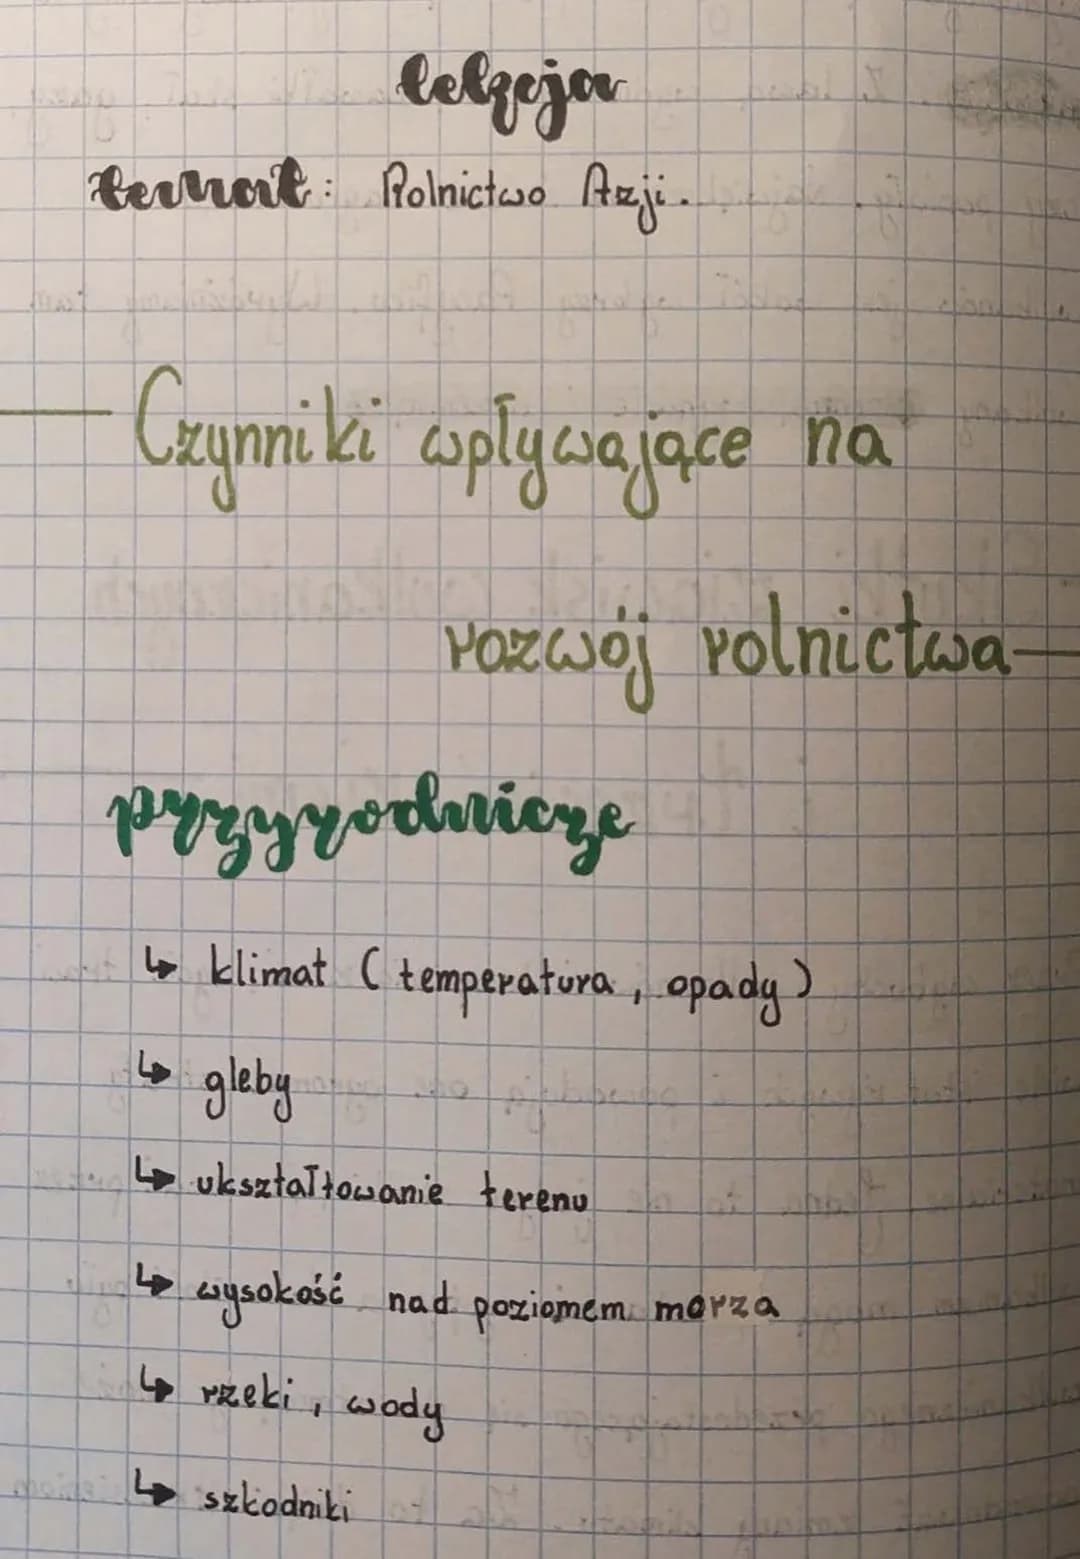 lekcja
temat: Rolnictwo Azji.
Czynniki wpływające na
rozwój rolnictwa
przyrodnicze
↳ klimat (temperatura, opady)
↳ gleby
↳ ukształtowanie terenu
↳ wysokość nad poziomem morza
↳ rzeki, wody
↳ szkodniki